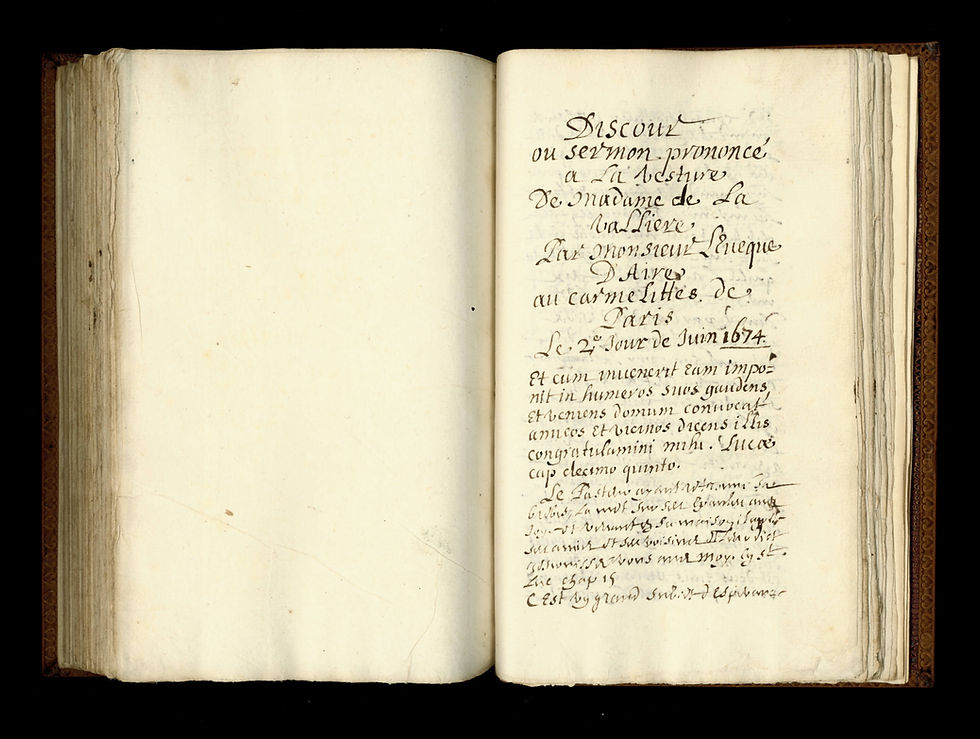 Discour
ou sermon prononcé
a La vesture
De Madame de La
valliere
Par Monsieur L'Eueque
D'Aire
au carmelittes de
Paris
Le 2e Jour de Juin 1674.
Et cum inuenerit Eam impo=
nit in humeros suos gaudens
Et veniens domum conuocat
amicos Et vicinos dicens illis
congratulamini mihi. Lucæ
cap decimo quinto.
Le Pasteur ayant retrouué sa
brebis, la met sur ses Epaules auec
Joye Et venant En sa maison Il apelle
ses amis Et ses voisins Et leur dict
rejouissez vous auec moy. En St.
Luc chap 15
C'Est un grand subiet d'Esperance